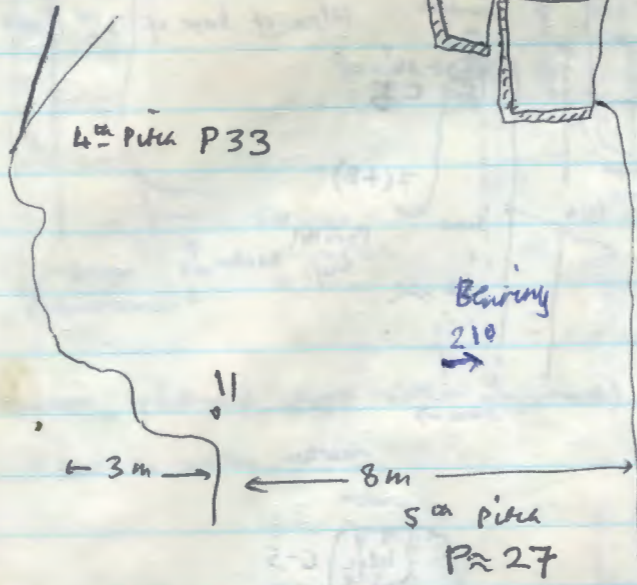 4th Pitch P33
Bearing
210
11
← 3m →
← 8m →
5th Pitch
P≈27